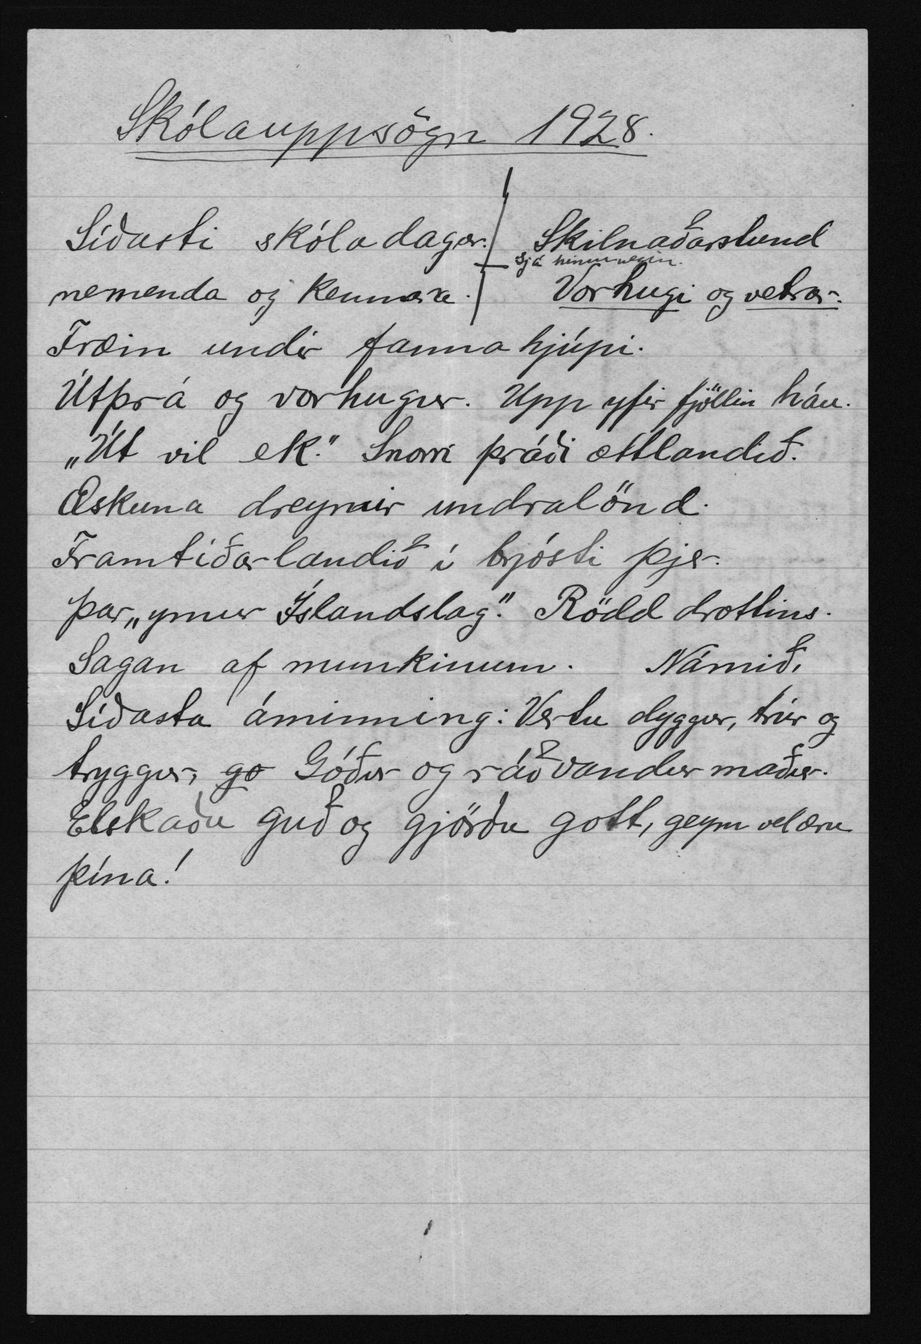 Skólauppsögn 1928.
Síðasti skóladagur. Skilnaðarstund
Sjá hinumegin.
nemenda og kennara. Vorhugi og vetrar.
Fræin undir fanna hjúpi.
Útþrá og vorhugur. Upp yfir fjöllin háu.
„Út vil ek." Snorri þráði ættlandið.
Æskuna dreymir undralönd.
Framtíðarlandið í brjósti þjer.
þar „ymur Íslandslag". Rödd drottins.
Sagan af munkinum. Námið.
Síðasta áminning: Vertu dyggur, trúr og
tryggur, go Góður og ráðvandur maður.
Elskaðu guð og gjörðu gott, geym vel æru
þína!